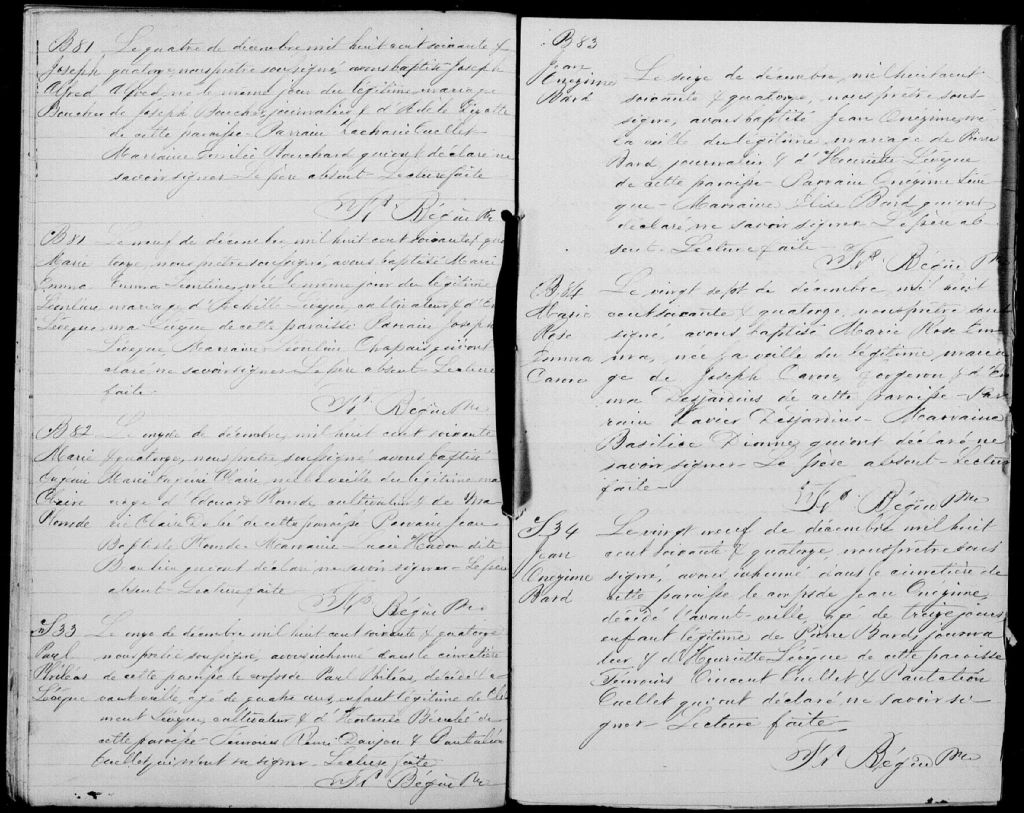 B 81 Le quatre de décembre mil huit cent soixante &
Joseph quatorze, nous prêtre soussigné, avons baptisé Joseph
Alfred Alfred, né le même jour du légitime mariage
Boucher de Joseph Boucher, journalier & d'Adèle
de cette paroisse - Parrain Zacharie Ouellet
Marraine Emilie Bouchard qui ont déclaré ne
savoir signer Le père absent - Lecture faite
Fr. Bégin Ptre
B 81 Le neuf de décembre mil huit cent soixante & qua
Marie torze, nous prêtre soussigné, avons baptisé Marie
Emma Emma Léontine, née le même jour du légitime
Léontine mariage d'Achille Levêque, cultivateur & d'
Levêque ma Levêque de cette paroisse Parrain Joseph
Levêque, Marraine Léontine Chapais, qui ont
claré ne savoir signer - Le père absent - Lecture
faite -
Fr. Bégin Ptre
B 82 Le onze de décembre, mil huit cent soixante
Marie & quatorze, nous prêtre soussigné avons baptisé
Marie Claire née la veille du légitime ma
Claire riage d'Edouard cultivateur & de Ma
rie Claire Dubé de cette paroisse Parrain Jean
Baptiste Marraine - Lucie dite
Beaulieu qui ont déclaré ne savoir signer - Le père
absent - Lecture faite -
Fr. Bégin Ptre
S 33 Le onze de décembre mil huit cent soixante & quatorze
Paul nous prêtre soussigné, avons inhumé dans le cimetière
Philéas de cette paroisse le corps de Paul Philéas, décédé l'a
Levêque vant veille, âgé de quatre ans, enfant légitime de Clé
ment Levêque, cultivateur & d'Hortense de
cette paroisse - Témoins & Pantaléon
Ouellet qui n'ont su signer - Lecture faite
Fr. Bégin Ptre
B 83
Jean
Onézime
Bard
Le seize de décembre, mil huit cent
soixante & quatorze, nous prêtre sous-
signé, avons baptisé Jean Onézime, né
la veille du légitime mariage de Pierre
Bard journalier & d'Henriette Levêque
de cette paroisse - Parrain Onézime Levê
que - Marraine Elise Bard qui ont
déclaré, ne savoir signer Le père ab
sent - Lecture faite -
Fr. Bégin Ptre
B 84 Le vingt sept de décembre, mil huit
Marie cent soixante & quatorze, nous prêtre sous
Rose signé, avons baptisé Marie Rose Em
Emma ma, née la veille du légitime maria
Caron ge de Joseph Caron, forgeron & d'Em
ma Desjardins de cette paroisse - Par
rain Xavier Desjardins - Marraine
Basilise Dionne, qui ont déclaré ne
savoir signer - Le père absent - Lecture
faite -
Fr. Bégin Ptre
S 34 Le vingt neuf de décembre mil huit
Jean cent soixante & quatorze, nous prêtre sous
Onézime signé, avons inhumé dans le cimetière de
Bard cette paroisse le corps de Jean Onézime,
décédé l'avant-veille, âgé de treize jours
enfant légitime de Pierre Bard, journa
lier, & d'Henriette Levêque de cette paroisse
Témoins Vincent Ouellet & Pantaléon
Ouellet qui ont déclaré ne savoir si
gner - Lecture faite -
Fr. Bégin Ptre